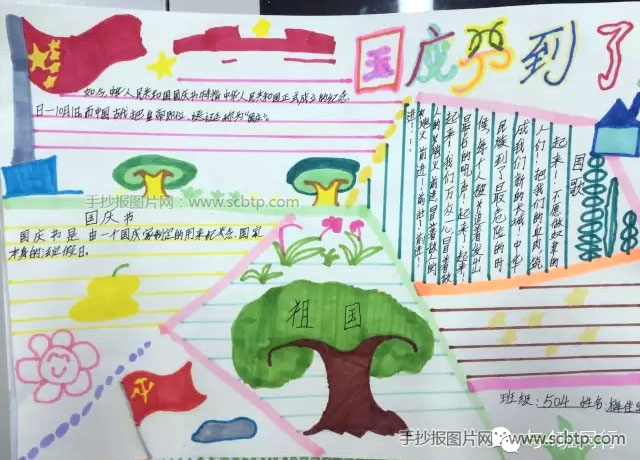 国庆节到了
如今,中华人民共和国国庆节特指中华人民共和国正式成立的纪念
日—10月1日。而中国古代把皇帝即位、诞辰称为"国庆"。
国歌
起来!不愿做奴隶的
人们!把我们的血肉筑
成我们新的长城!中华
民族到了最危险的时
候,每个人被迫着发出
最后的吼声。起来!起来!
起来!我们万众一心,冒着敌
人的炮火前进!冒着敌人的
炮火 前进!前进!前
进!
手抄报图片网:www.scbtp.com
国庆节
国庆节是由一个国家制定的用来纪念国家
本身的法定假日。
祖国
班级:504 姓名:
手抄报图片网:www.scbtp.com